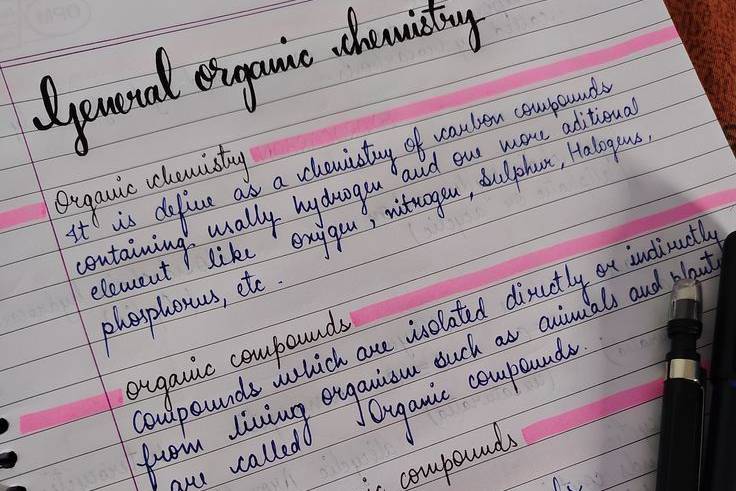 General organic chemistry
Organic chemistry
It is define as a chemistry of carbon compounds
containing usally hydrogen and one more aditional
element like oxygen, nitrogen, Sulphur, Halogens,
phosphorus, etc.
organic compounds
compounds which are isolated directly or indirectly
from living organism such as animals and plants
are called Organic compounds.
compounds